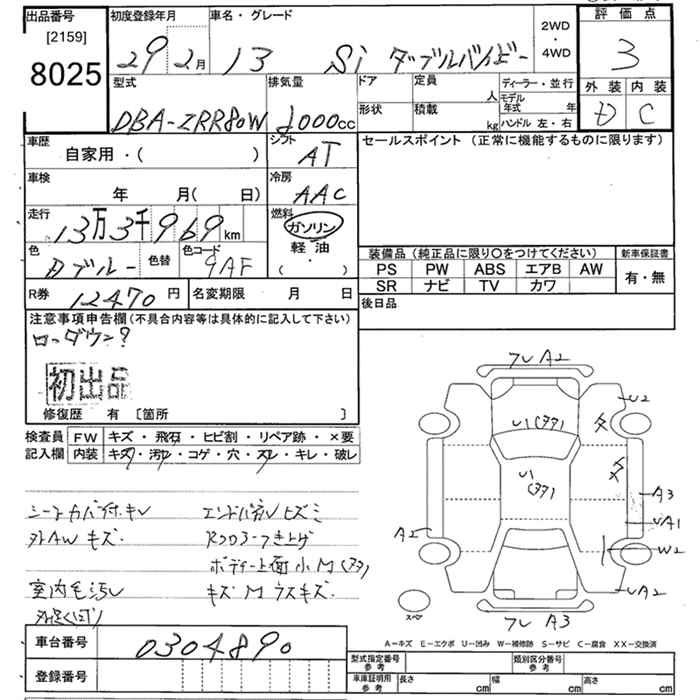 出品番号
[2159]
8025
初度登録年月
29 2月
車名・グレード
13 Si ダブルバイビー
2WD
・
4WD
評価点
3
外装 内装
D C
型式
DBA-ZRR80W
排気量
2000cc
ドア
形状
定員
人
積載
kg
ディーラー・並行
モデル年式 年
ハンドル 左・右
車歴
自家用・( )
シフト
AT
セールスポイント (正常に機能するものに限ります)
車検
年 月(日)
冷房
AAC
走行
13万3千969km
燃料
ガソリン
軽油
( ・ )
色
Dブルー
色替
色コード
9AF
R券
12470円
名変期限 月 日
装備品 (純正品に限り○をつけてください)
PS PW ABS エアB AW
SR ナビ TV カワ
新車保証書
有・無
後日品
注意事項申告欄(不具合内容等は具体的に記入して下さい)
ローダウン?
初出品
修復歴 有 〔箇所 〕
検査員
記入欄
FW キズ・飛石・ヒビ割・リペア跡・×要
内装 キズ・汚レ・コゲ・穴・スレ・キレ・破レ
シートカバー付・キレ
外AWキズ・
室内毛汚レ
コアサポートヒズミ
ボディー上面小M(タタ)
キズM ウスキズ・
フレA2
U2
U1(タタ)
U1
(タタ)
A3
UA1
A2
W2
UA2
スペア
フレA3
A-キズ E-エクボ U-凹み W-補修跡 S-サビ C-腐食 XX-交換済
車台番号
0304890
登録番号
型式指定番号
参考
類別区分番号
参考
車庫証明用
参考
長さ cm 幅 cm 高さ cm